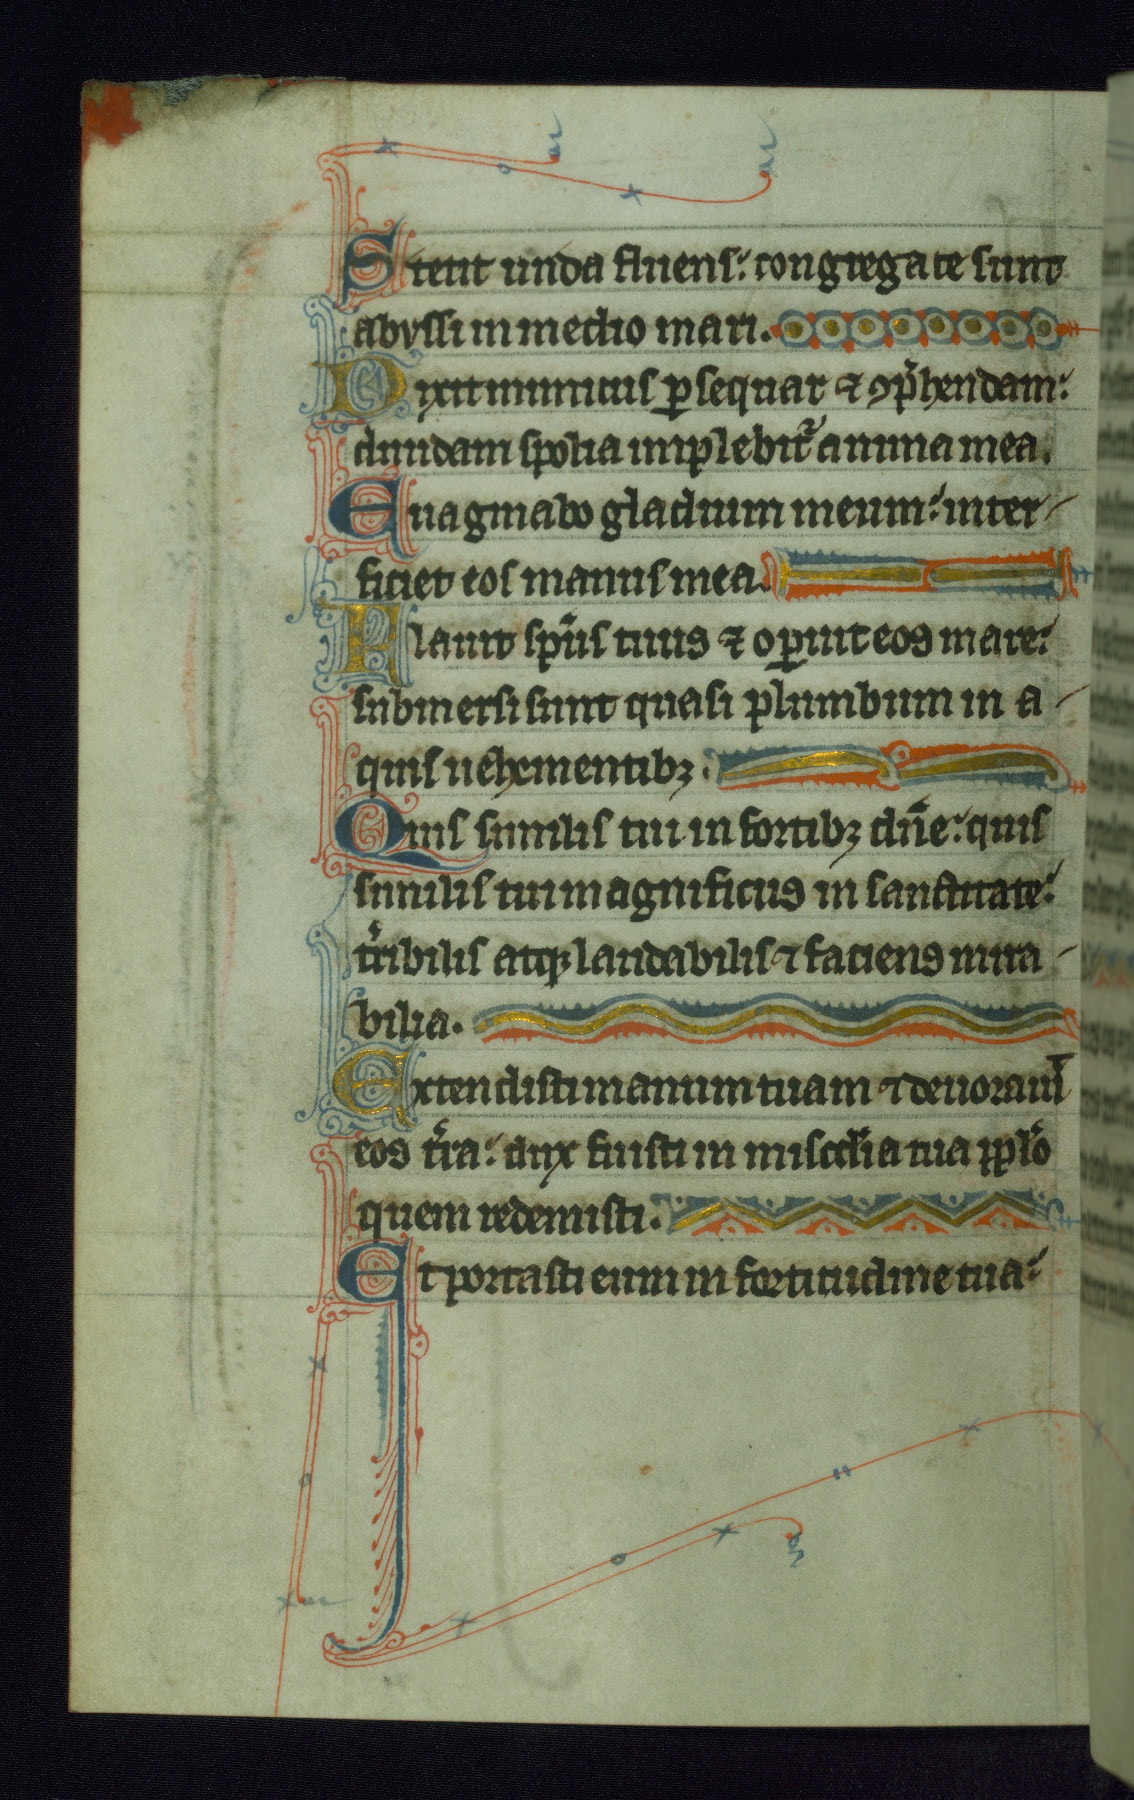 Stetit unda fluens: congregate sunt
abyssi in medio mari.
Dixit inimicus ꝑsequar ⁊ ꝯp̄hendam:
diuidam spolia implebit᷑ anima mea.
Euaginabo gladium meum: inter-
ficiet eos manus mea.
Flauit sp̄us tuus ⁊ oꝑuit eos mare:
submersi sunt quasi plumbum in a-
quis uehementibꝫ.
Quis similis tui in fortibꝫ dn̄e: quis
similis tui magnificus in sanctitate:
tr̄ibilis atqꝫ laudabilis ⁊ faciens mira-
bilia.
Extendisti manum tuam ⁊ deuorauit
eos tr̄a: dux fuisti in misc̄dia tua pp̄lo
quem redemisti.
Et portasti eum in fortitudine tua: